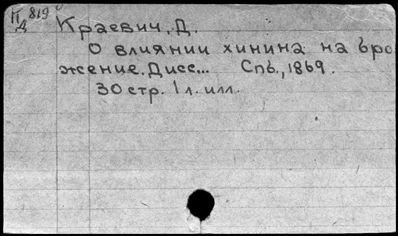 П 819
Д
Краевич, Д.
О влиянии хинина на бро
жение. Дисс... Спб., 1869.
30 стр. 1 л. илл.